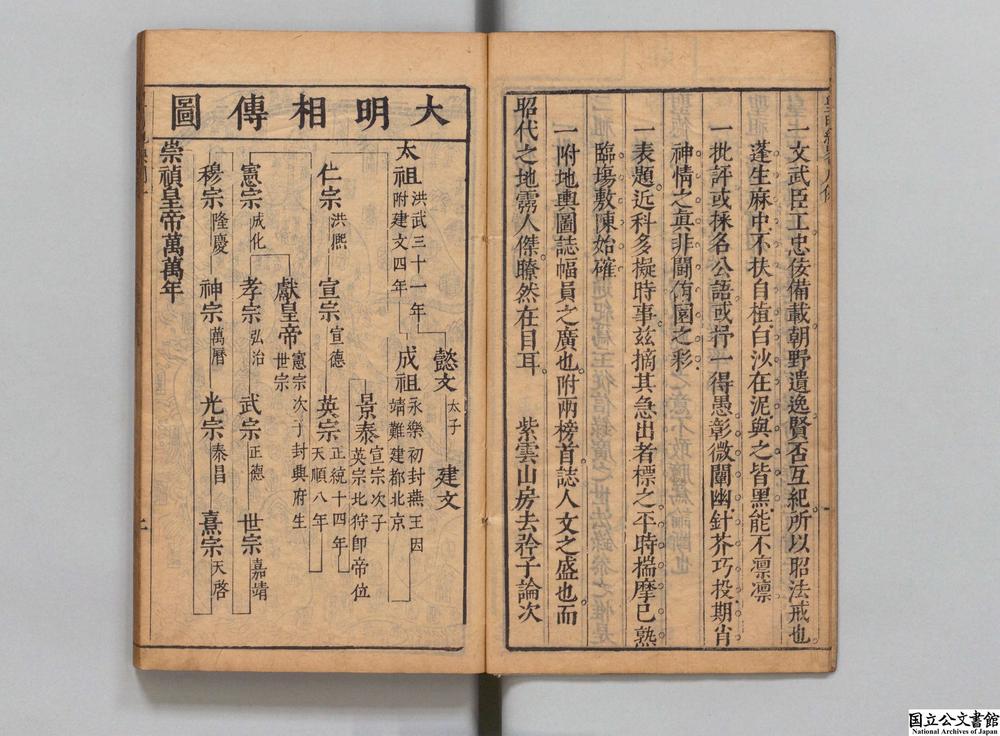 一文武臣工忠佞備載朝野遺逸賢否互紀所以昭法戒也
蓬生麻中不扶自植白沙在泥與之皆黑能不凛凛
一批評或採名公語或抒一得愚彰微闡幽針芥巧投期肖
神情之眞非鬪侑園之彩
一表題近科多擬時事茲摘其急出者標之平時揣摩已熟
臨塲敷陳始確
一附地輿圖誌幅員之廣也附兩榜首誌人文之盛也而
昭代之地靈人傑瞭然在目耳 紫雲山房去矜子論次
大明相傳圖
懿文 太子 建文
太祖 洪武三十一年 附建文四年 成祖 永樂初封燕王因靖難建都北京
景泰 宣宗次子英宗北狩卽帝位
仁宗 洪熙 宣宗 宣德 英宗 正統十四年 天順八年
獻皇帝 憲宗次子封興府生世宗
憲宗 成化 孝宗 弘治 武宗 正德 世宗 嘉靖
穆宗 隆慶 神宗 萬曆 光宗 泰昌 熹宗 天啓
崇禎皇帝萬萬年
国立公文書館
National Archives of Japan